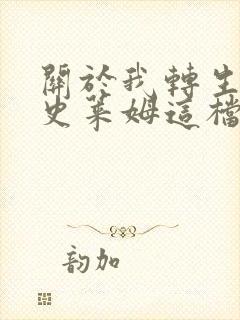 關於我轉生
史萊姆這檔
韵加